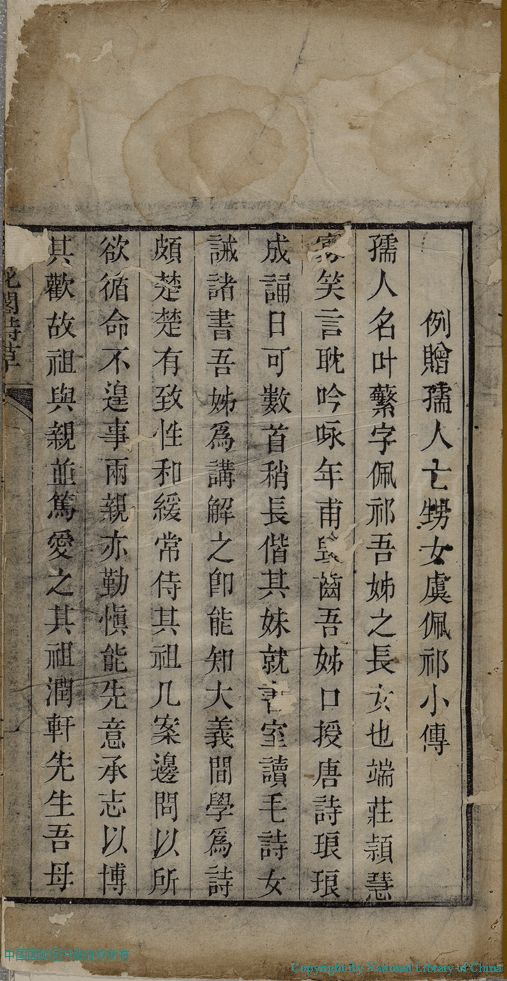 例贈孺人亡甥女虞佩祁小傳
孺人名叶蘩字佩祁吾姊之長女也端莊頴慧
寡笑言耽吟咏年甫毀齒吾姊口授唐詩琅琅
成誦日可數首稍長偕其妹就書室讀毛詩女
誡諸書吾姊爲講解之卽能知大義間學爲詩
頗楚楚有致性和緩常侍其祖几案邊問以所
欲循命不遑事兩親亦勤慎能先意承志以博
其歡故祖與親並篤愛之其祖潤軒先生吾母
閣詩草
Copyright by National Library of China